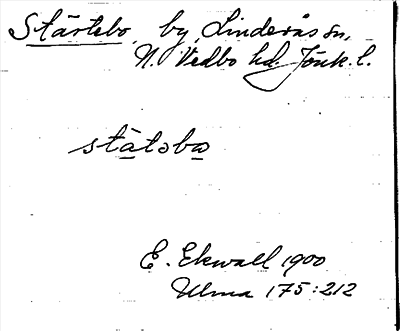 Stärtebo, by, Linderås sn,
N. Vedbo hd. Jönk. l.
stätəbω
E. Ekwall 1900
Ulma 175:212